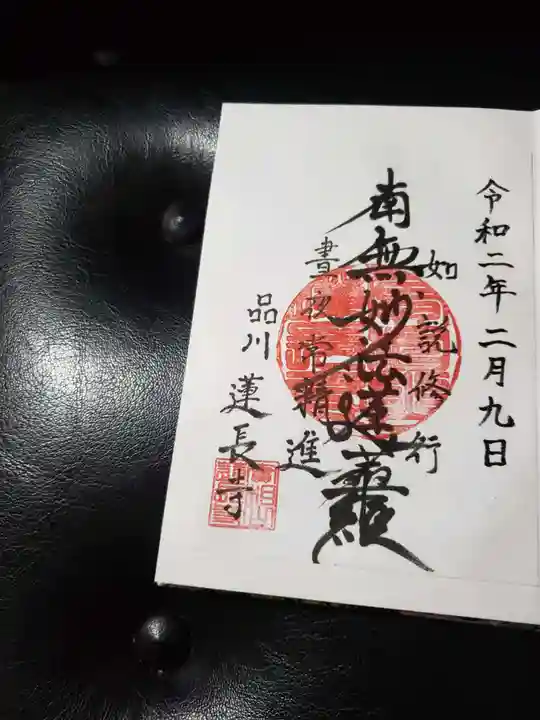 令和二年二月九日
如説修行
南無妙法蓮華經
晝夜常精進
品川 蓮長寺